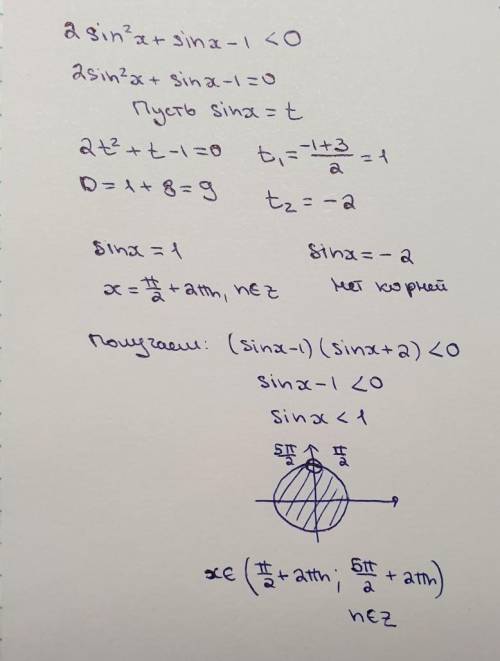 2sin²x + sinx - 1 < 0
2sin²x + sinx - 1 = 0
Пусть sinx = t
2t² + t - 1 = 0 t₁ = (-1+3)/2 = 1
D = 1 + 8 = 9 t₂ = -2
sinx = 1 sinx = -2
x = π/2 + 2πn, n∈Z нет корней
Получаем: (sinx-1)(sinx+2) < 0
sinx - 1 < 0
sinx < 1
5π/2 π/2
x∈(π/2 + 2πn; 5π/2 + 2πn)
n∈Z